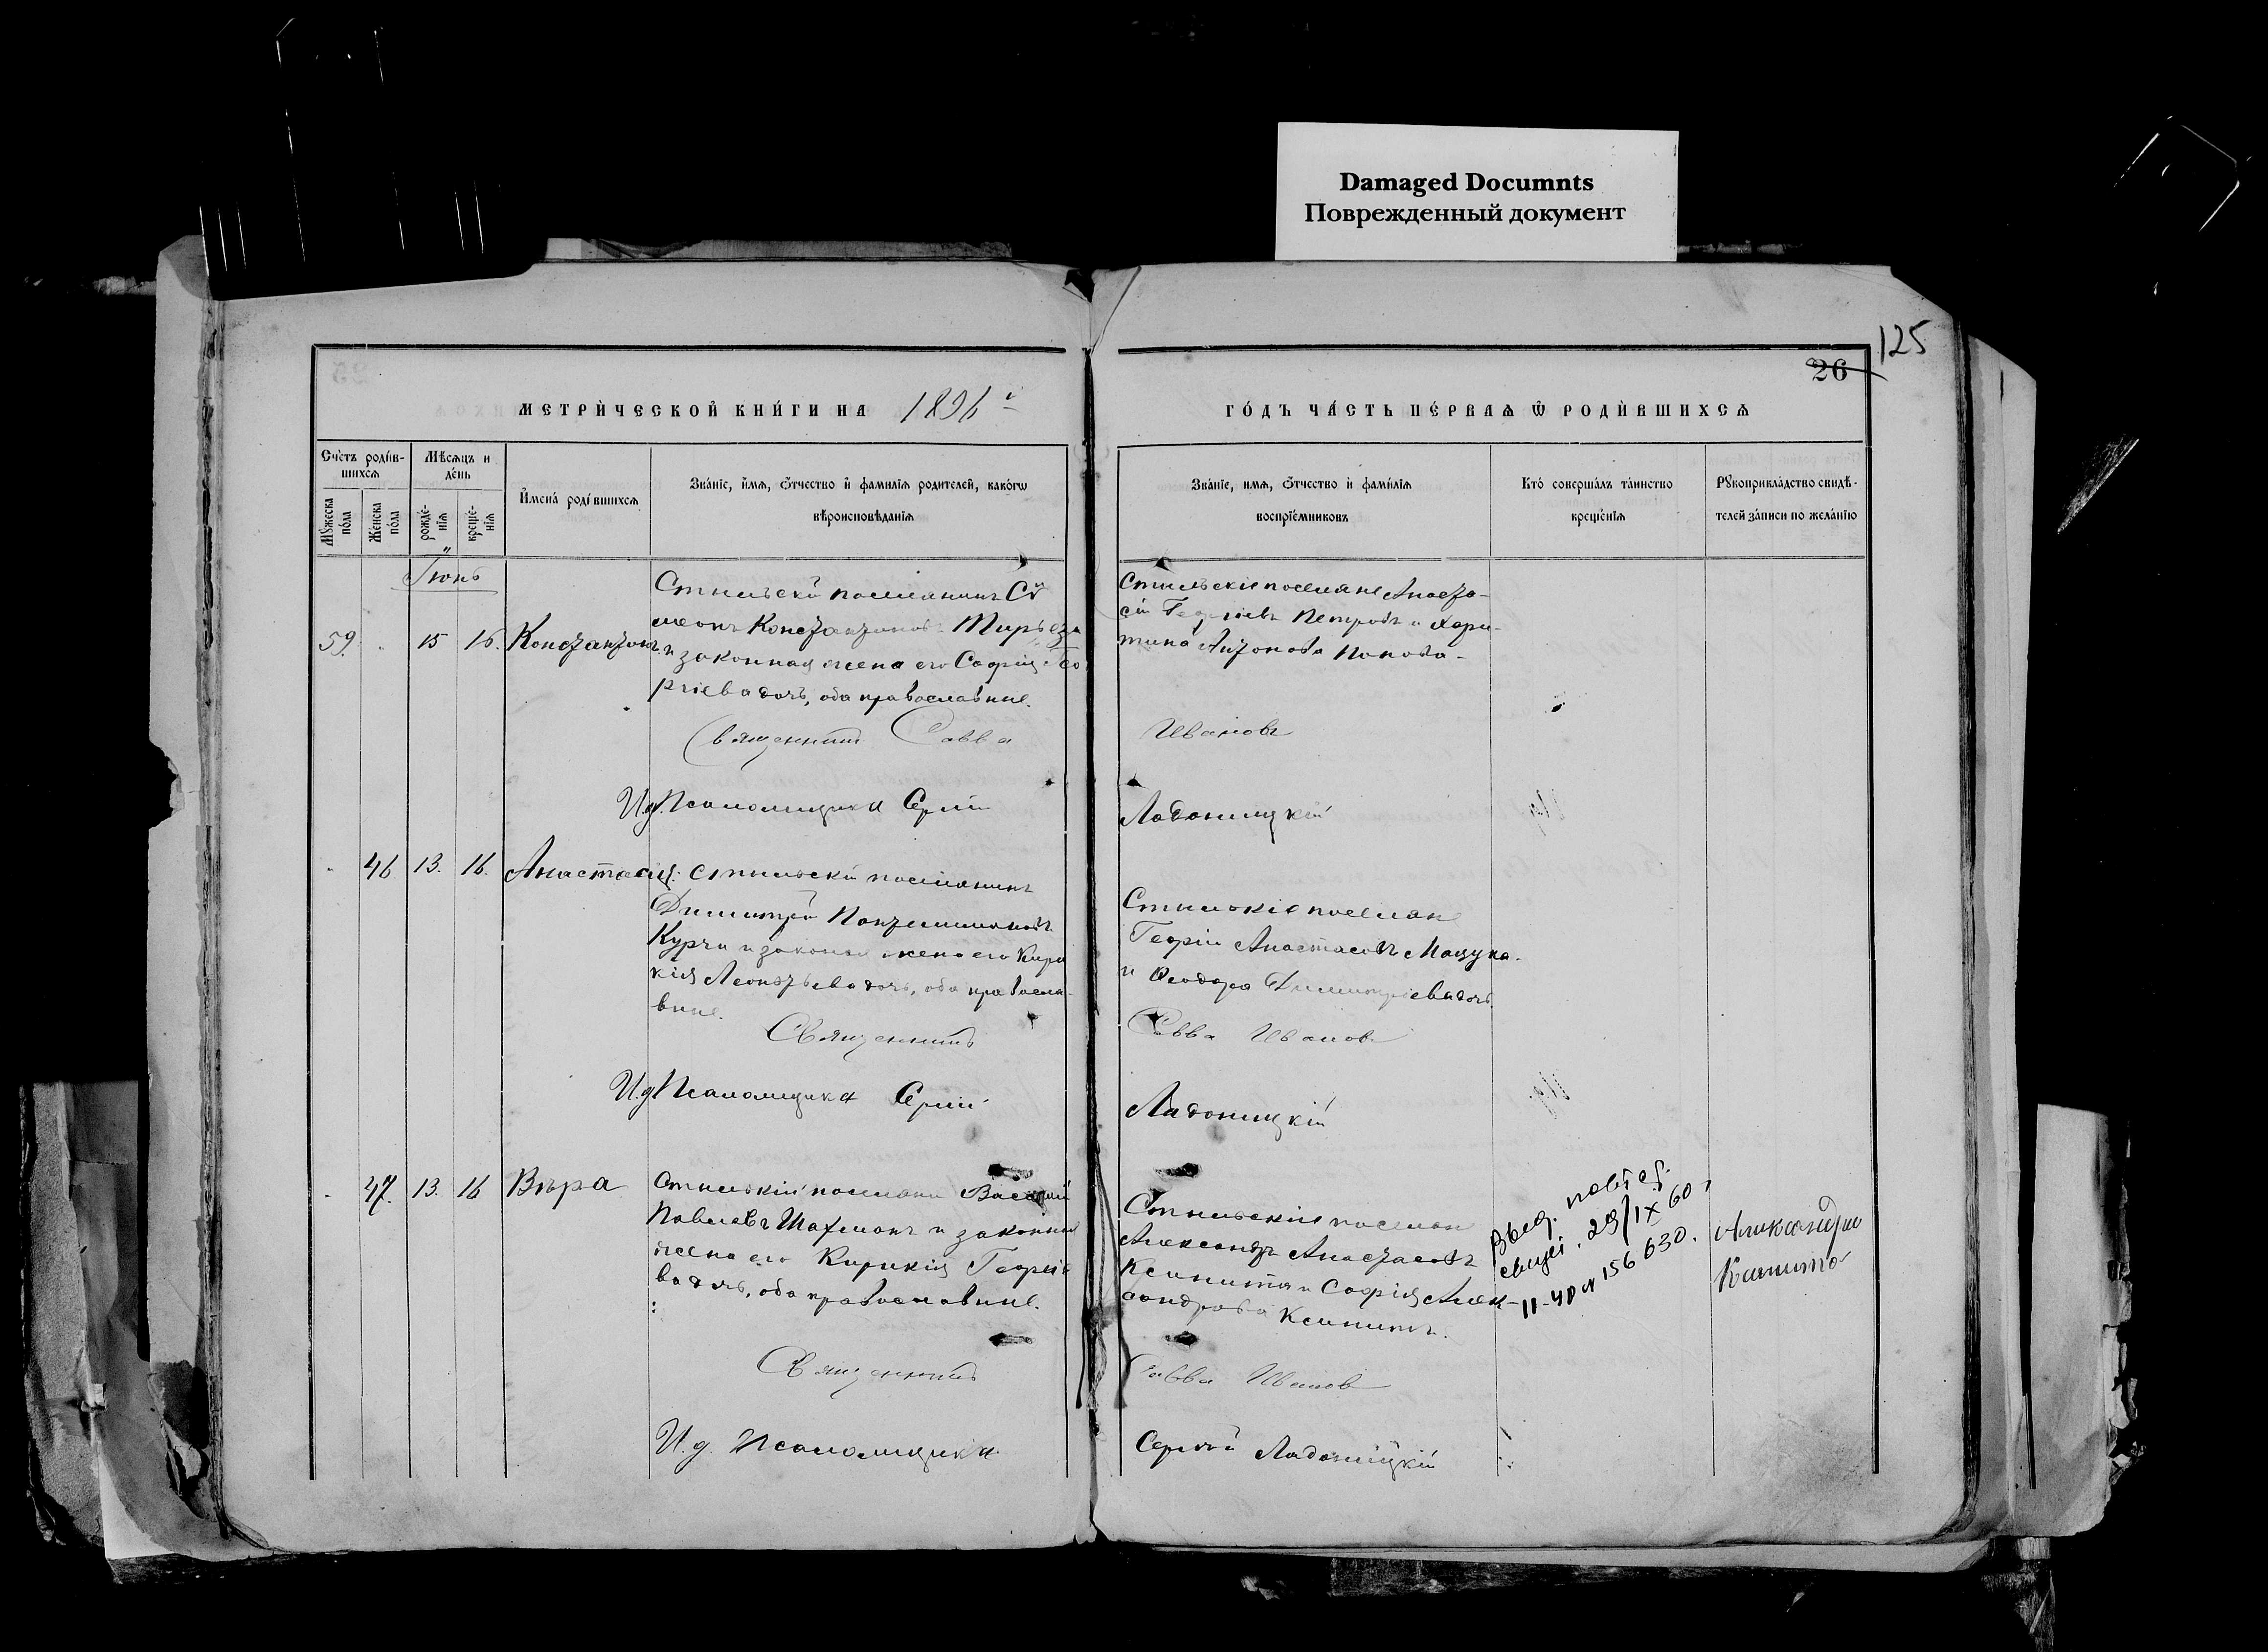 Damaged Documnts
Поврежденный документ
125
26
МЕТРИ́ЧЕСКОЙ КНИ́ГИ НА 1896 й
ГО́ДЪ ЧА́СТЬ ПЕ́РВАѦ Ѿ РОДИ́ВШИХСѦ
Счетъ роди́в-
шихсѧ
Мѣсѧцъ и
де́нь
Мꙋ́жеска
по́ла
Же́нска
по́ла
рожде́-
нїѧ
креще́-
нїѧ
И҆мена̀ роди́вшихсѧ
Зва́нїе, и҆мѧ, ѻ҆́тчество и҆ фами́лїѧ родителей, како́гѡ
вѣроисповѣ́данїѧ
Зва́нїе, имѧ, ѻ҆́тчество и҆ фами́лїѧ
воспрїе́мниковъ
Кто̀ соверша́лъ та́инство
креще́нїѧ
Рꙋкоприкла́дство свидѣ́-
телей за́писи по жела́нїю
Іюнь
59. 15 16. Константинъ
Стильскій поселянинъ Сѵ
меонъ Константиновъ
и законная жена его Софія Гео
ргіева дочь, оба православные.
Стильскіе поселяне Анаста-
сій Георгіевъ Петровъ и Хари-
тина Антонова Попова-
Священникъ Савва Ивановъ
И.д. Псаломщика Сергій Ладоницкій
46. 13. 16. Анастасія
Стильскій поселянинъ
Димитрій Пантелимоновъ
Курчи и законная жена его Кири
кія Леонтьева дочь, оба правосла-
вные.
Стильскіе поселяне
Георгій Анастасовъ Мацука
и Ѳеодора Димитріева дочь.
Священникъ Савва Ивановъ
И.д. Псаломщика Сергій Ладоницкій
47. 13. 16 Вѣра
Стильскій поселянинъ Василій
Павловъ Шахманъ и законная
жена его Кирикія Георгіе
ва дочь, оба православные.
Стильскіе поселяне
Александръ Анастасовъ
Ксенита и Софія Алек-
сандрова Ксенита.
Выд. повтор.
свидет. 29/IX 60
156630.
Александръ
Священникъ Савва Ивановъ
И.д. Псаломщика Сергій Ладоницкій